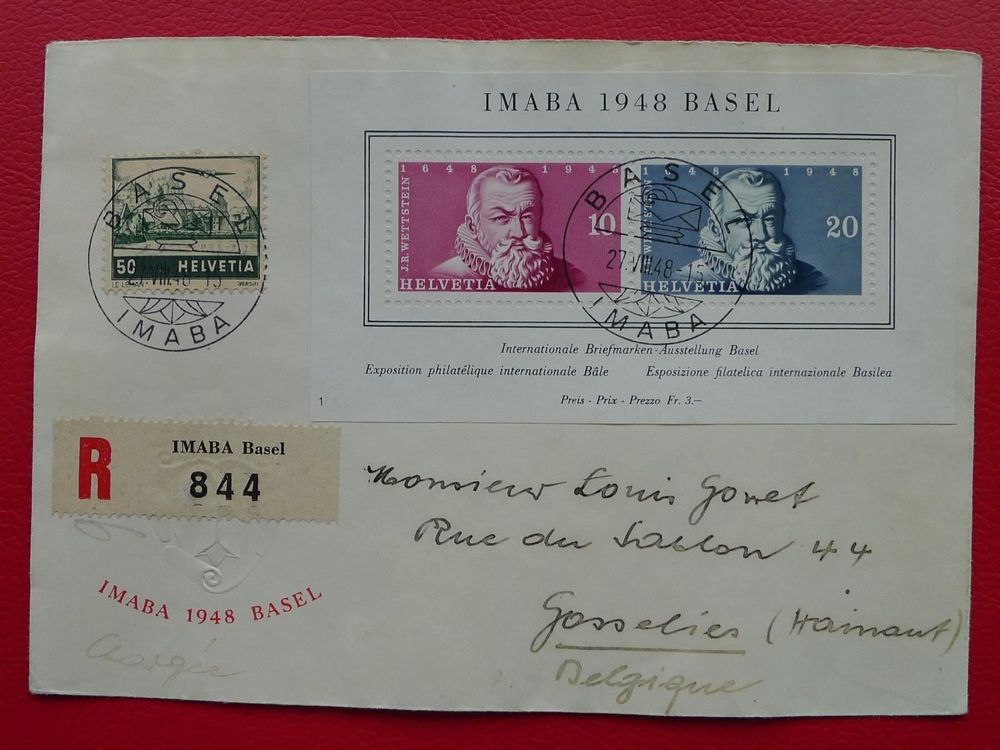 IMABA 1948 BASEL
1648 1948
J.R.WETTSTEIN
10
HELVETIA
1648 1948
WETTSTEIN
20
HELVETIA
BASEL
27.VIII.48-15
IMABA
Internationale Briefmarken-Ausstellung Basel
Exposition philatélique internationale Bâle Esposizione filatelica internazionale Basilea
Preis - Prix - Prezzo Fr. 3.—
1
50 HELVETIA
BASEL
27.VIII.48-15
IMABA
R
IMABA Basel
844
IMABA 1948 BASEL
Chargée
Monsieur Louis Gowet
Rue du Sablon 44
Gosselies (Hainaut)
Belgique